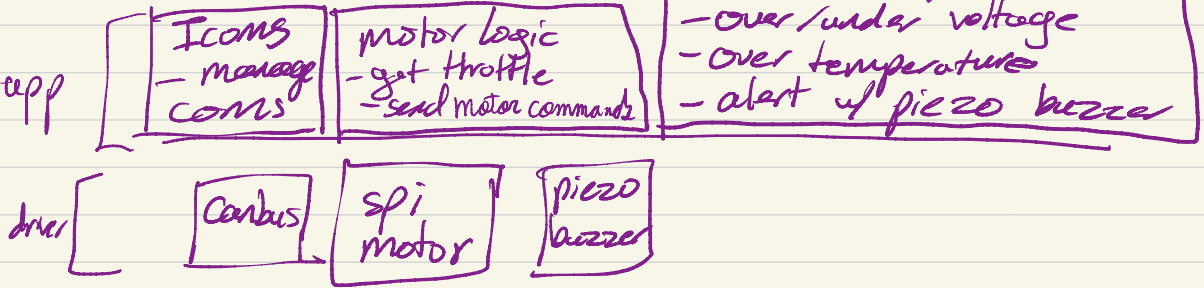 app
Icoms
- manage
coms
motor logic
- get throttle
- send motor commands
- over/under voltage
- over temperature
- alert w/ piezo buzzer
driver
Canbus
spi
motor
piezo
buzzer